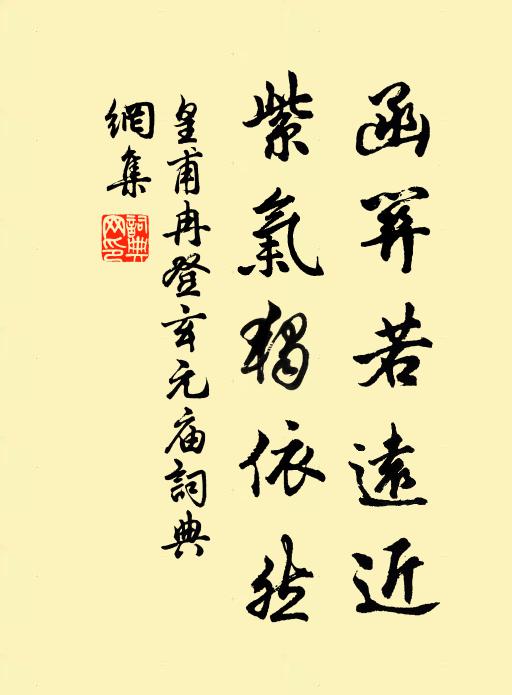 函關若遠近
紫氣獨依然
皇甫冉登玄元庙詞典
網集
詞典
网印